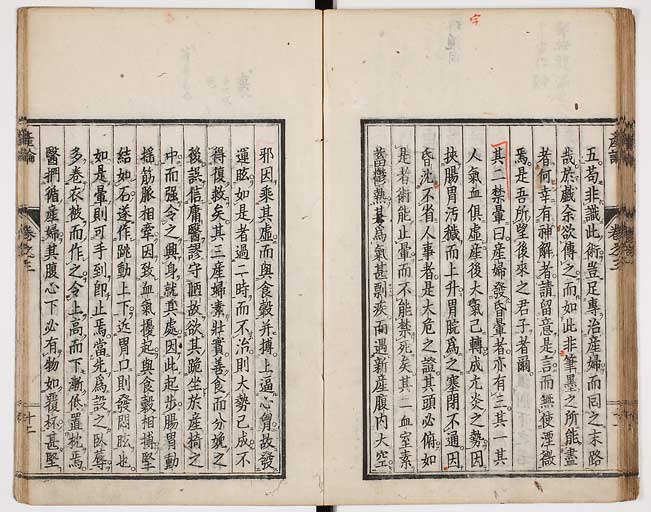 五苟非識此術豈足專治産婦而同之末路
哉於戲余欲傳之而如此非筆墨之所能盡
者何幸有神解者請留意是言而無使湮微
焉是吾所望後來之君子者爾
其二禁暈曰産婦發昏暈者亦有三其一其
人氣血俱虛産後大氣己轉成亢炎之勢因
挾腸胃汚穢而上升胃脘爲之塞閉不通因
昏沈不省人事者是大危之證其頭必俯如
是者術能止暈而不能禁死矣其二血室素
蓄鬱熱其爲氣甚剽疾而遇新産腹内大空
産論
卷之二
邪因乘其虛而與食穀并搏上逼心胃故發
運眩如是者過二時而不治則大勢已成不
得復救矣其三産婦素壯實善食而分娩之
後誤信庸醫謬守甑故欲其跪坐於産椅之
中而强令之興身就其處因此起步腸胃動
搖筋脈相牽因致血氣擾起與食穀相摶堅
結如石遂作跳動上下近胃口則發悶眩也
如是暈則可手到卽止焉當先爲設之臥蓐
多卷衣被而作之令上高而下漸低置枕焉
醫捫循産婦其腹心下必有物如覆杯甚堅
産論
卷之二
十二